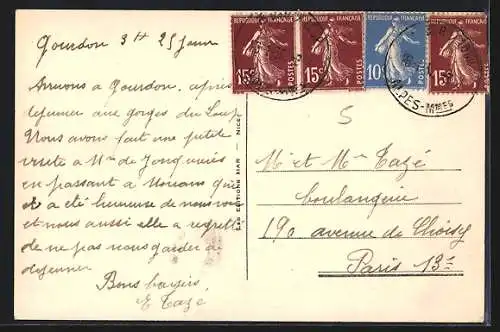 Gourdon 3 H 25 Janv
Arrivons à Gourdon, après
déjeuner aux gorges du Loup
Nous avons fait une petite
visite à Mme de
en passant à Mouans qui
a été heureuse de nous voir
et nous aussi elle a regretté
de ne pas nous garder à
déjeuner
Bons baisers
E Tazé
LES EDITIONS MAR - NICE
REPUBLIQUE FRANÇAISE
15c POSTES
REPUBLIQUE FRANÇAISE
15c POSTES
REPUBLIQUE FRANÇAISE
10c POSTES
REPUBLIQUE FRANÇAISE
15c POSTES
ALPES-MMES
5
Mr et Mme Tazé
boulangerie
190 avenue de Choisy
Paris 13e